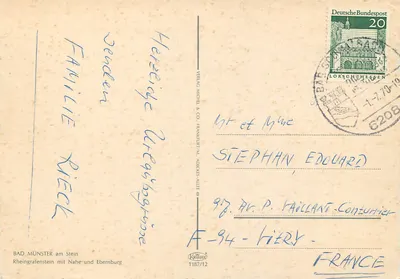 Herzliche Urlaubsgrüsse
senden
FAMILIE RIECK
BAD MÜNSTER am Stein
Rheingrafenstein mit Nahe- und Ebernburg
1187/12
Deutsche Bundespost
20
LORSCH/HESSEN
BAD
-1.-7.70-18
6208
Mr et Mme
STEPHAN, EDOUARD
97, Av. P. VAILLANT-COUTURIER
F-94-
FRANCE